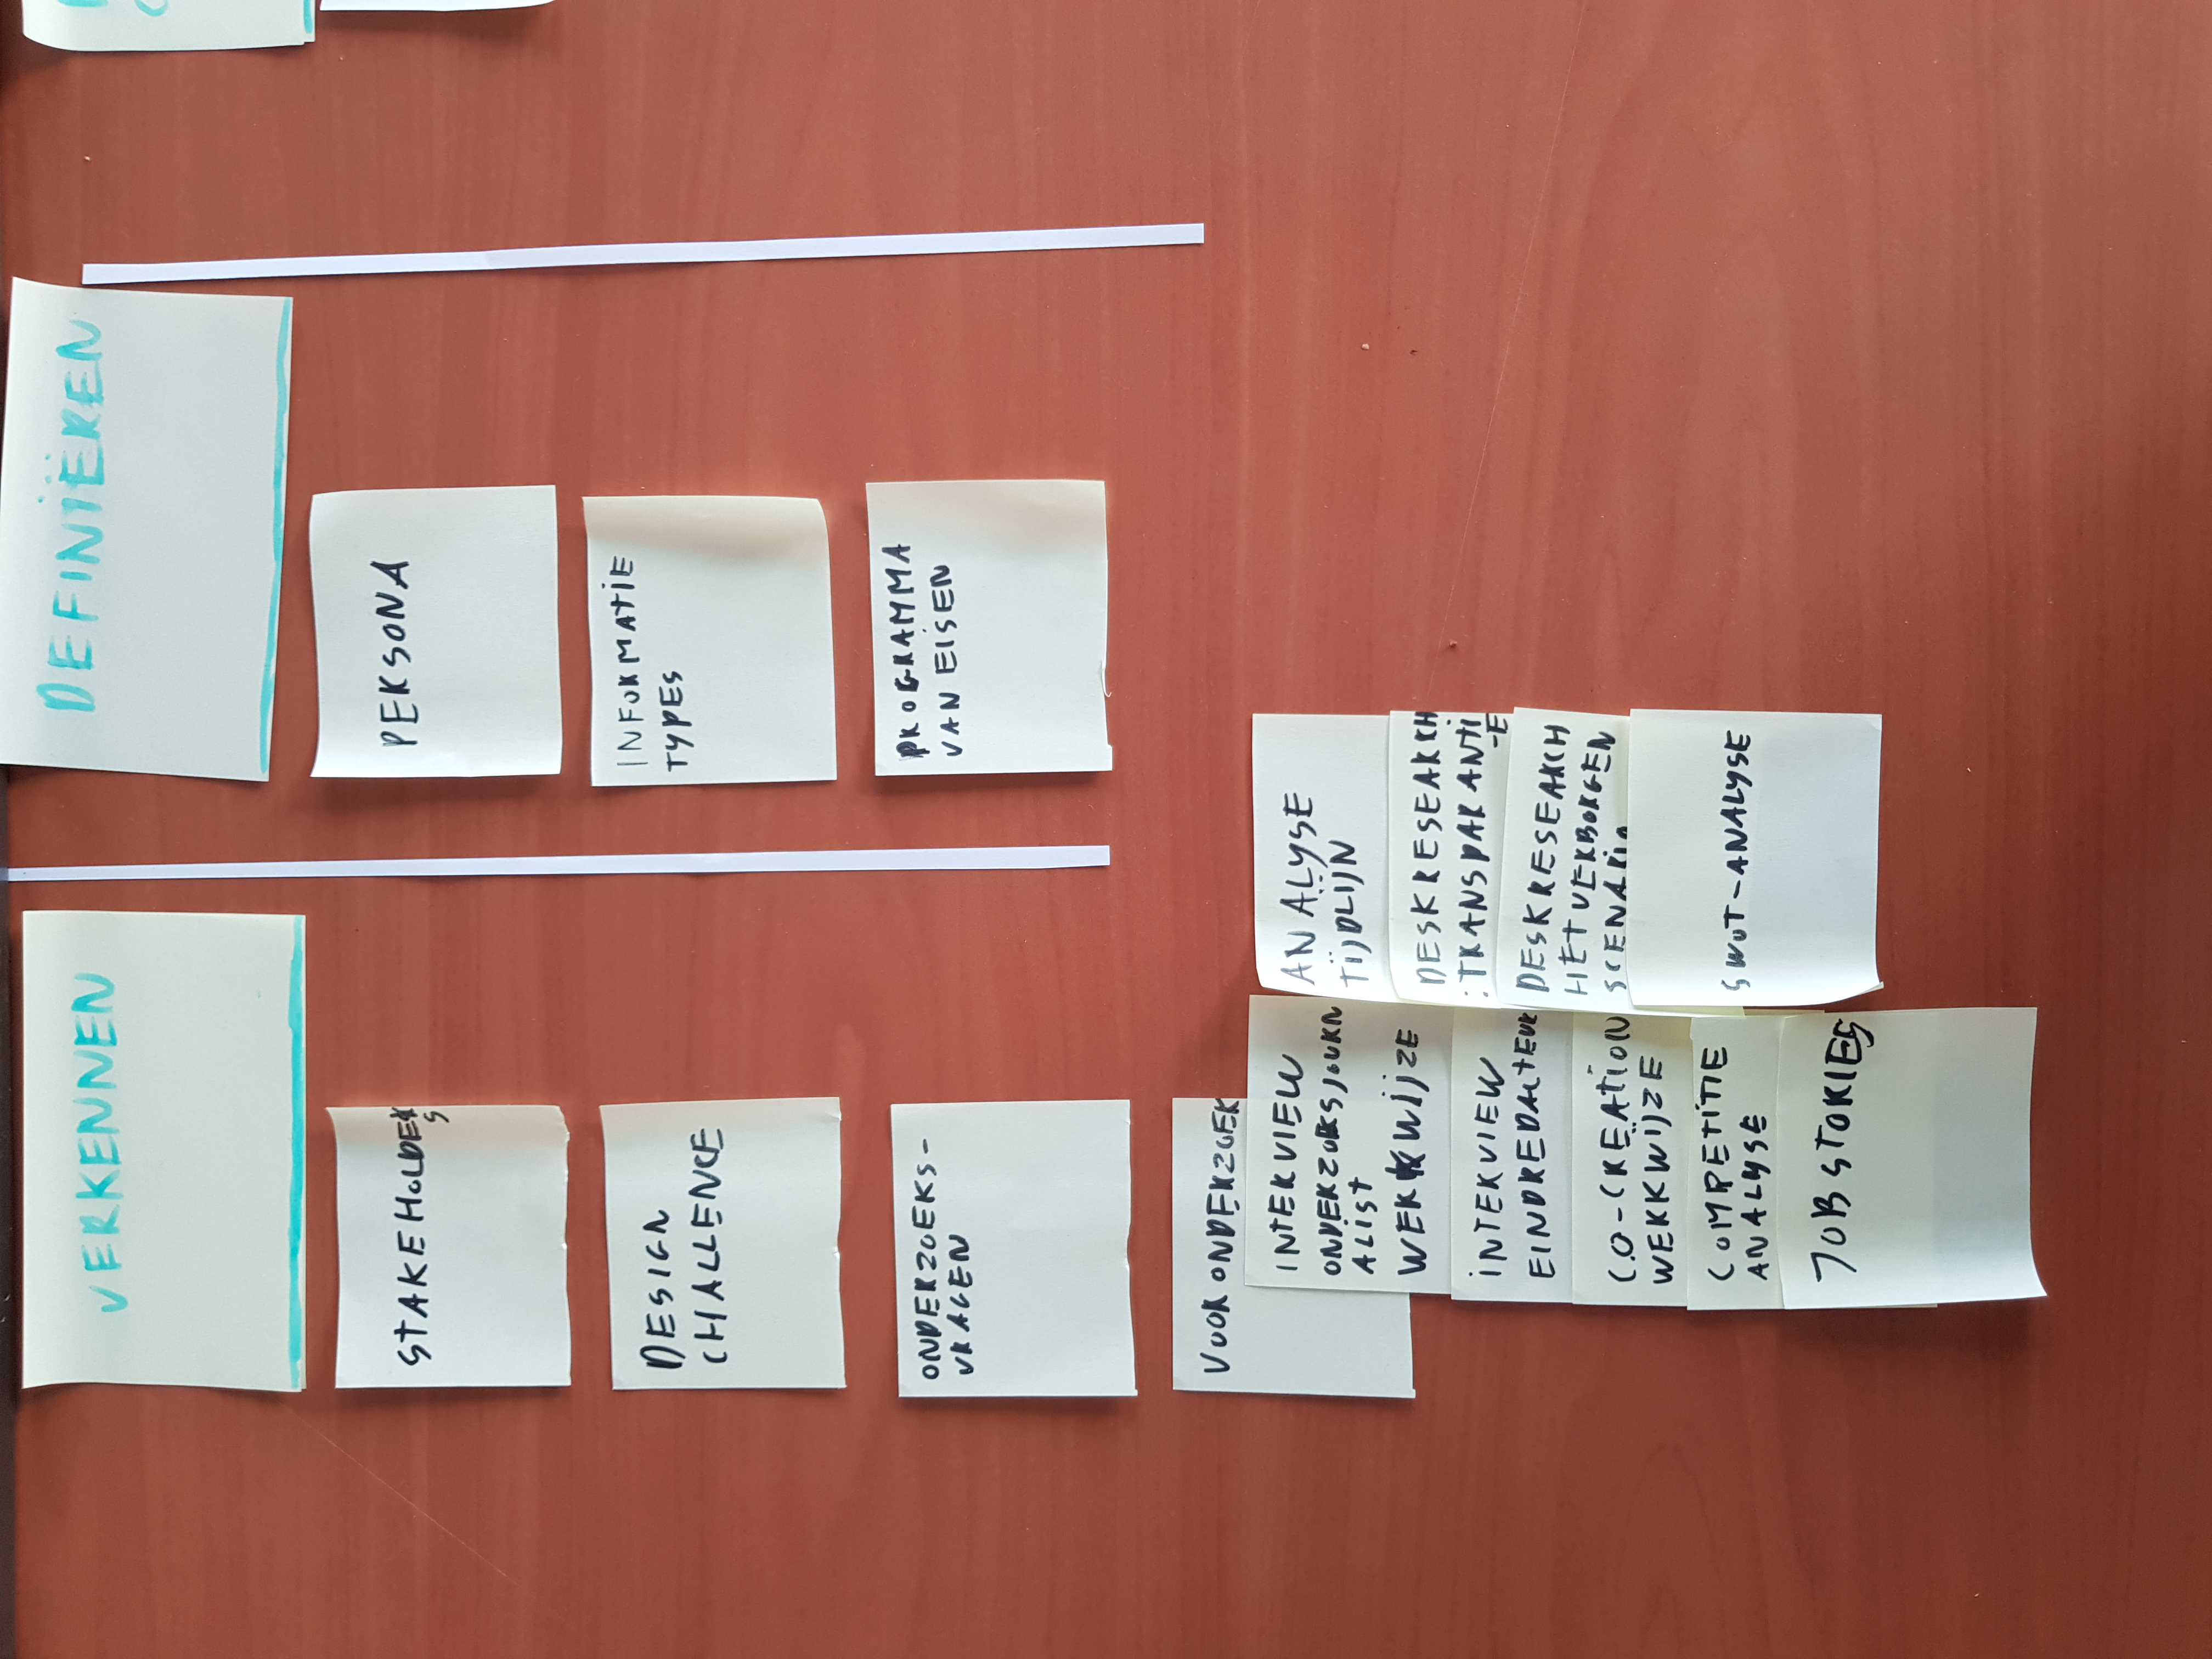 VERKENNEN
STAKEHOLDER
S
DESIGN
CHALLENGE
ONDERZOEKS-
VRAGEN
VOORONDERZOEK
INTERVIEW
ONDERZOEKSJOURN
ALIST
WERKWIJZE
INTERVIEW
EINDREDACTEUR
CO-CREATION
WERKWIJZE
COMPETITIE
ANALYSE
JOB STORIES
ANALYSE
TIJDLIJN
DESKRESEARCH
: TRANSPARANTI
-E
DESKRESEARCH
HET VERBORGEN
SCENARIO
SWOT-ANALYSE
DEFINIËREN
PERSONA
INFORMATIE
TYPES
PROGRAMMA
VAN EISEN